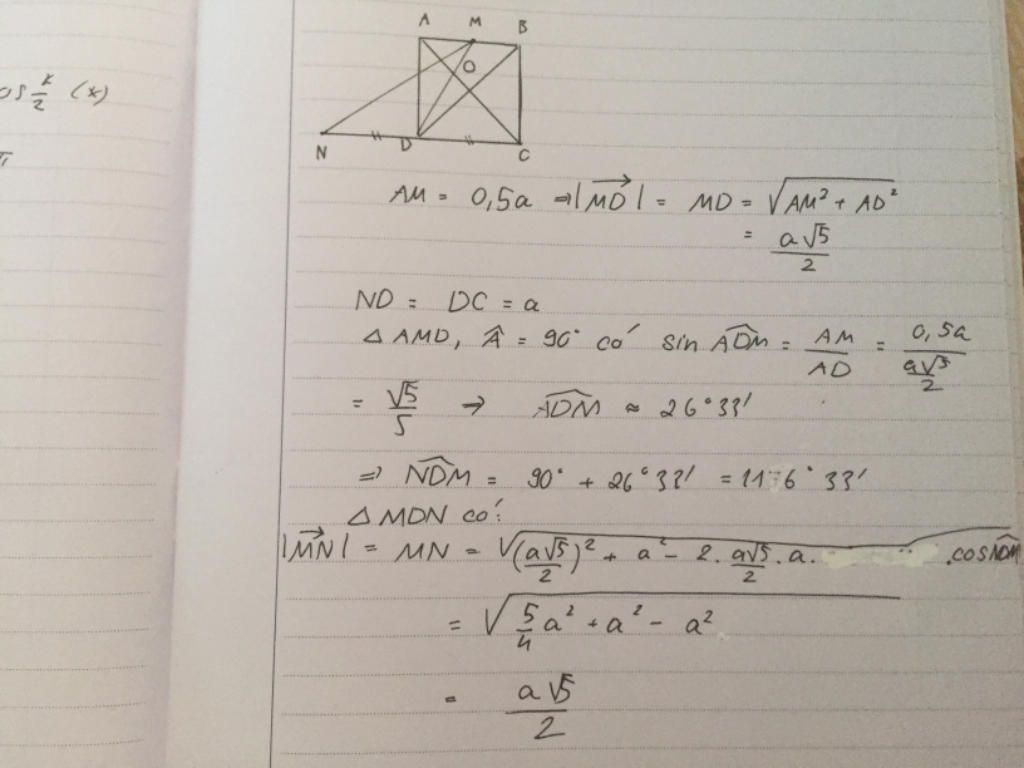 os x/2 (*)
A M B
O
N D C
AM = 0,5a ⇒ |\overrightarrow{MD}| = MD = √(AM² + AD²)
= a√5/2
ND = DC = a
△ AMD, Â = 90° có sin \widehat{ADM} = AM/AD = 0,5a/(a√5/2)
= √5/5 → \widehat{ADM} ≈ 26°33'
⇒ \widehat{NDM} = 90° + 26°33' = 116°33'
△ MDN có:
|\overrightarrow{MN}| = MN = √((a√5/2)² + a² - 2. a√5/2 .a. .cos\widehat{NDM})
= √(5/4 a² + a² - a²)
= a√5/2